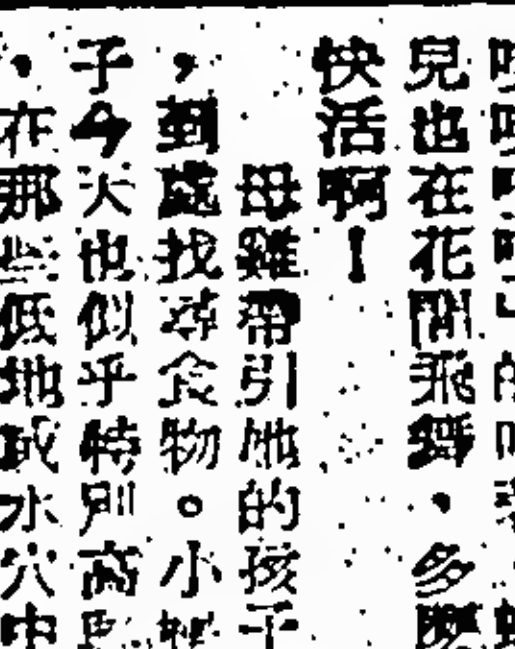 兒也在花間飛舞，多麼
快活啊！
母雞帶引牠的孩子
，到處找尋食物。小
子今天也似乎特別高
，在那些低地或水穴中